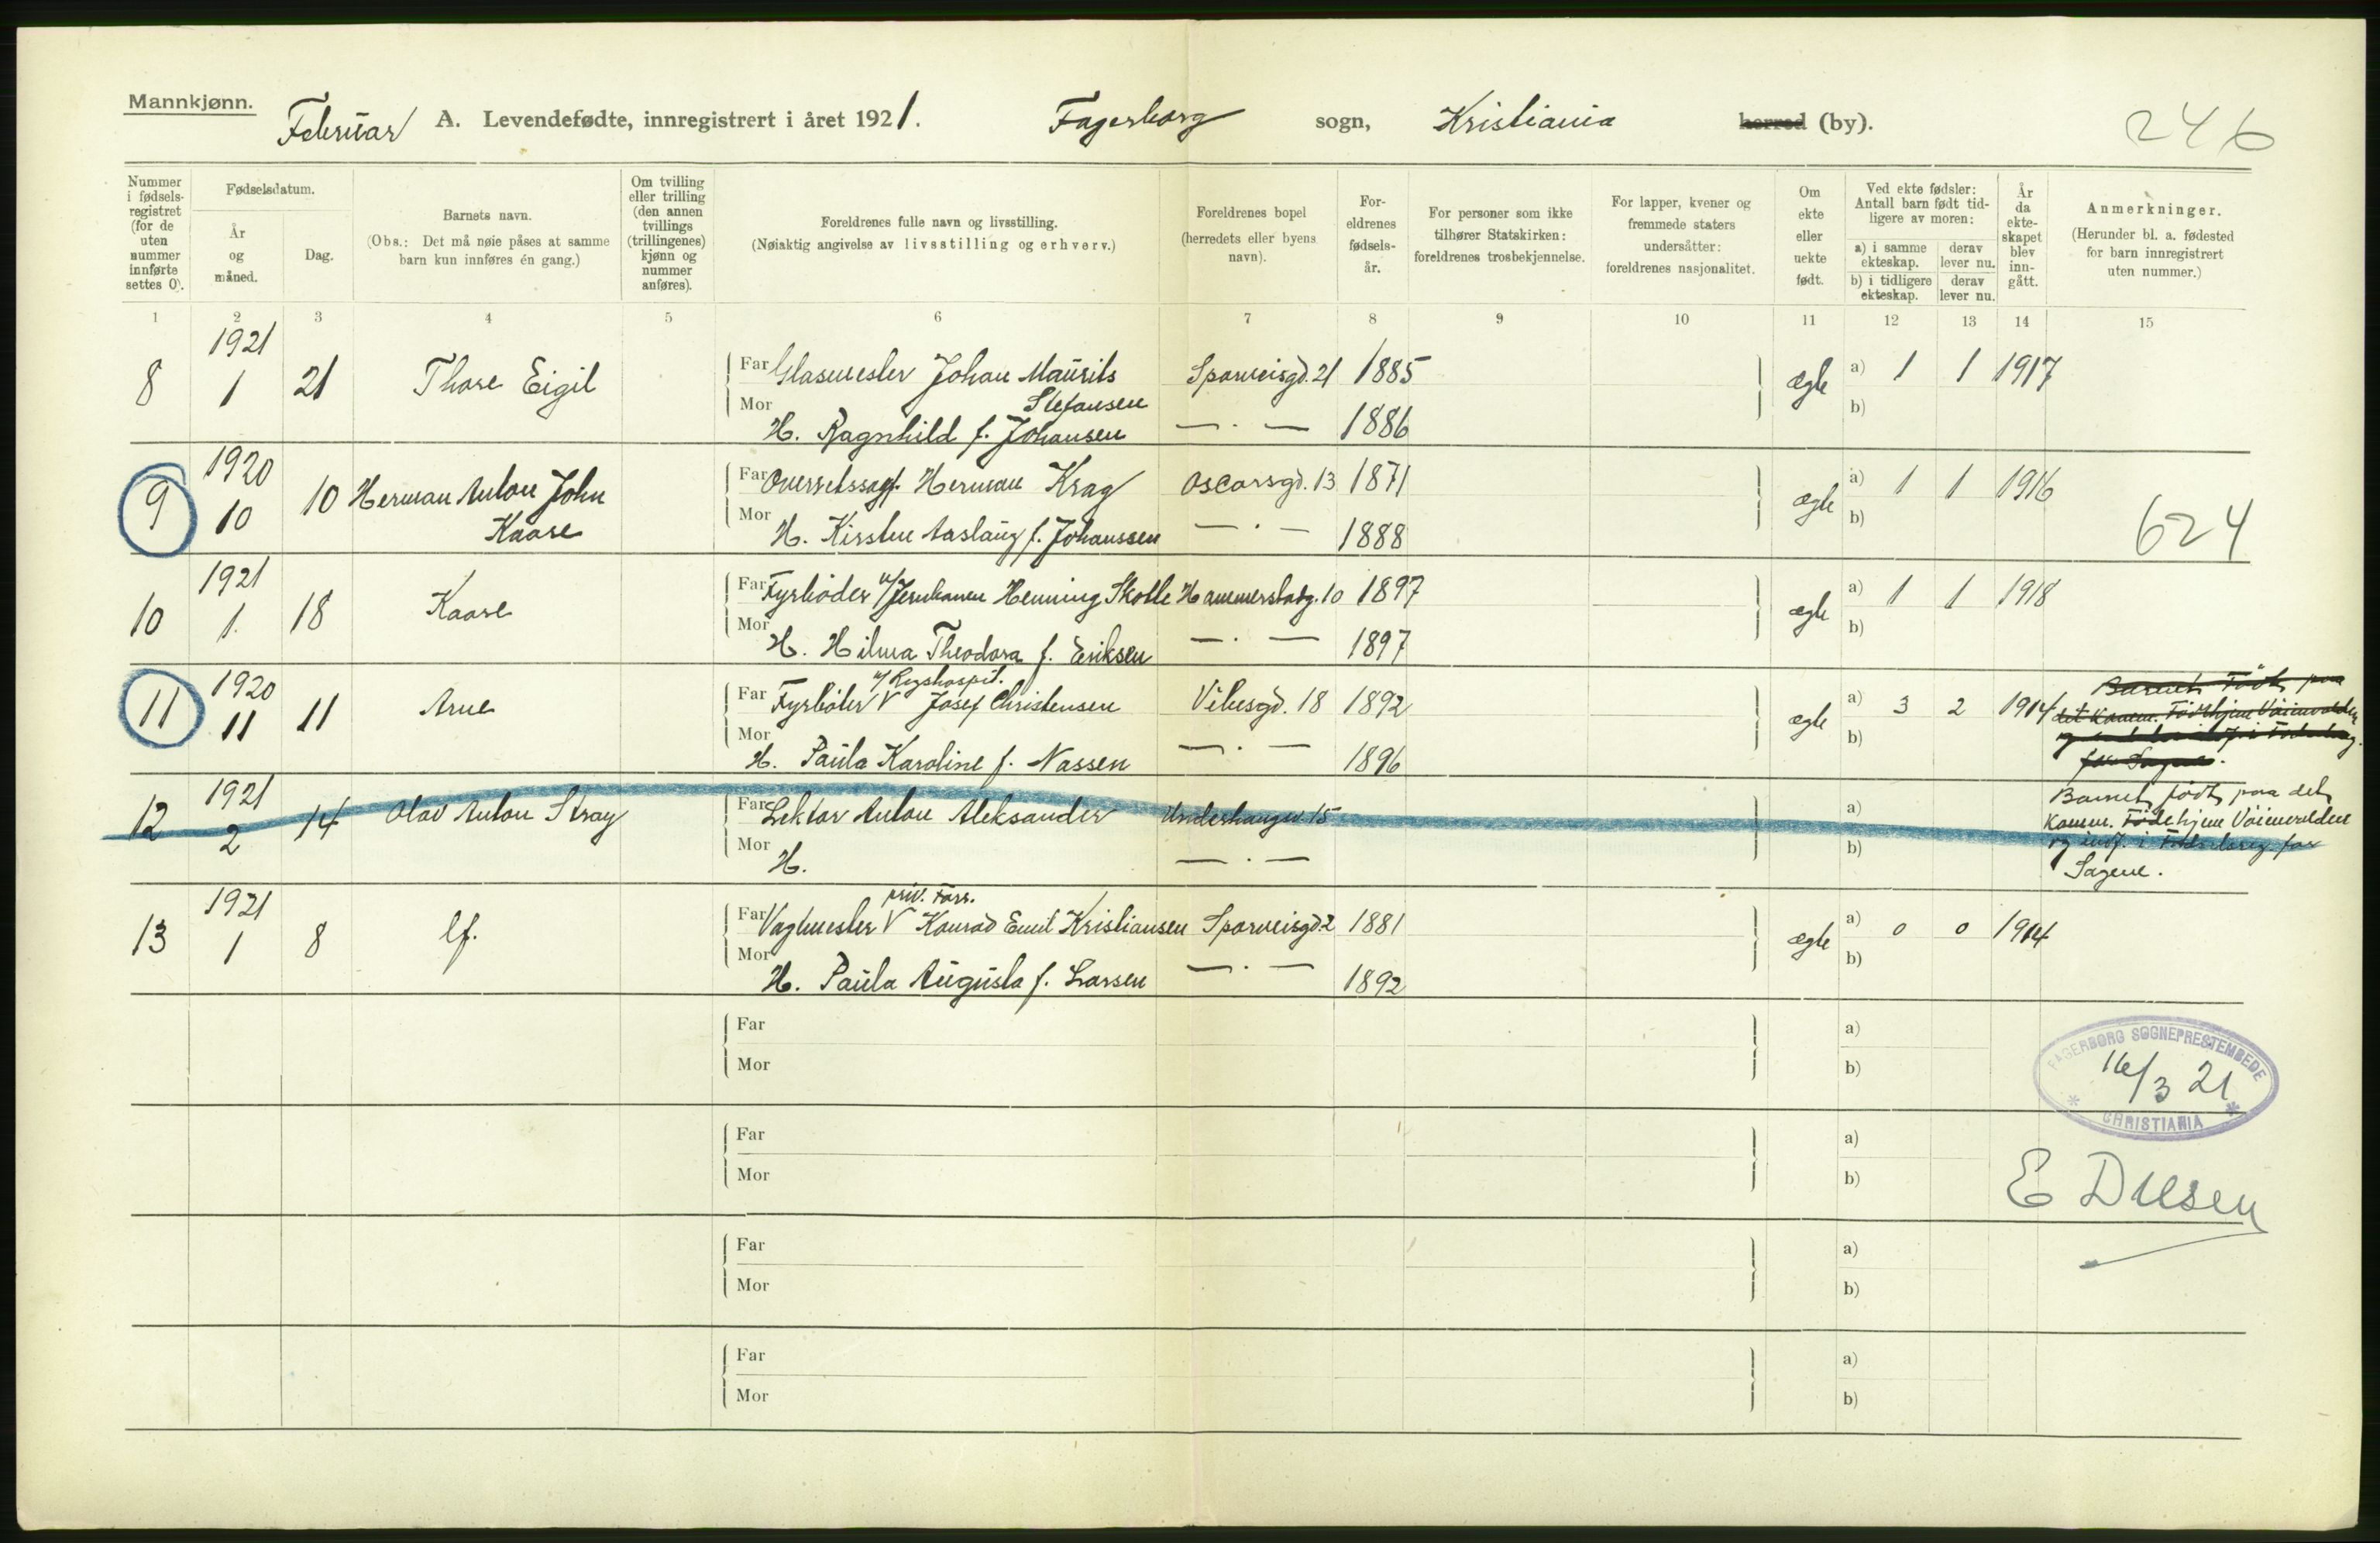 Mannkjønn.
Februar A. Levendefødte, innregistrert i året 1921. Fagerborg sogn, Kristiania herred (by). 246
Nummer i fødselsregistret (for de uten nummer innførte settes 0).
Fødselsdatum.
År og måned.
Dag.
Barnets navn.
(Obs.: Det må nøie påses at samme barn kun innføres én gang.)
Om tvilling eller trilling (den annen tvillings (trillingenes) kjønn og nummer anføres).
Foreldrenes fulle navn og livsstilling.
(Nøiaktig angivelse av livsstilling og erhverv.)
Foreldrenes bopel (herredets eller byens navn).
Foreldrenes fødselsår.
For personer som ikke tilhører Statskirken: foreldrenes trosbekjennelse.
For lapper, kvener og fremmede staters undersåtter: foreldrenes nasjonalitet.
Om ekte eller uekte født.
Ved ekte fødsler: Antall barn født tidligere av moren:
a) i samme ekteskap. derav lever nu.
b) i tidligere ekteskap. derav lever nu.
År da ekteskapet blev inngått.
Anmerkninger.
(Herunder bl. a. fødested for barn innregistrert uten nummer.)
1 2 3 4 5 6 7 8 9 10 11 12 13 14 15
1921
8 1 21 Thore Eigil Far Glasmester Johan Maurits Sporveisgd. 21 1885 ægte a) 1 1 1917
Stefansen
Mor H. Ragnhild f. Johansen — . — 1886 b)
1920
9 10 10 Herman Anton John Far Herman Krag Oscarsgd. 13 1871 ægte a) 1 1 1916
Kaare Mor H. Kirsten Aaslaug f. Johanssen — . — 1888 b) 624
1921
10 1. 18 Kaare Far Fyrbøder v/Jernbanen Henning Skotte Hammerstadg. 10 1897 ægte a) 1 1 1918
Mor H. Hilma Theodora f. Eriksen — . — 1897 b)
1920 v/ Rigshospit.
11 11 11 Arne Far Fyrbøter V Josef Christensen Vibesgd. 18 1892 ægte a) 3 2 1914
Mor H. Paula Karoline f. Nassen — . — 1896 b)
Barnet født paa
det komm. Fødehjem Vøienvolden
for Sagene.
1921
12 2 14 Olav Anton Stray Far Lektor Anton Aleksander Underhaugsv. 15 a)
Mor H. — . — b)
Barnet født paa det
komm. Fødehjem Vøienvolden
og indf. i Fødselsreg. for
Sagene.
1921 priv. Forr.
13 1 8 lf. Far Vagtmester V Konrad Emil Kristiansen Sporveisgd. 2 1881 ægte a) 0 0 1914
Mor H. Paula Augusta f. Larsen — . — 1892 b)
Far a)
Mor b)
FAGERBORG SOGNEPRESTEMBEDE
16/3 21
* CHRISTIANIA *
Far a)
Mor b)
E Duesen
Far a)
Mor b)
Far a)
Mor b)